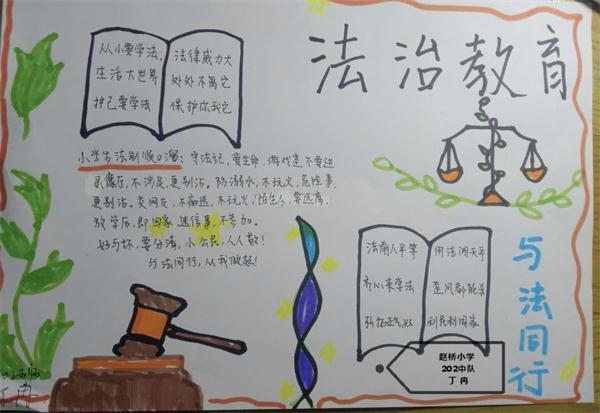 法治教育
从小要学法,
生活大世界
护己要学法
法律威力大
处处不离它
保护你我它
小学生法制顺口溜: 守法纪,爱生命,游戏室,不要进
录像厅,不涉足,更别沾。防溺水,不玩火,危险事,
更别沾。交网友,不痴迷,不玩火,陌生人,要远离,
放学后,即回家 迷信事,不参加。
好与坏,要分清,小公民,人人敬!
与法同行,从我做起!
法前人平等
齐心来学法
弘扬正气
用法闹天平
歪风都能杀
利民利国家
与法同行
赵桥小学
202中队
丁冉
丁冉